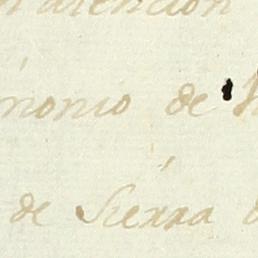 atencion
monio de
de Sierra